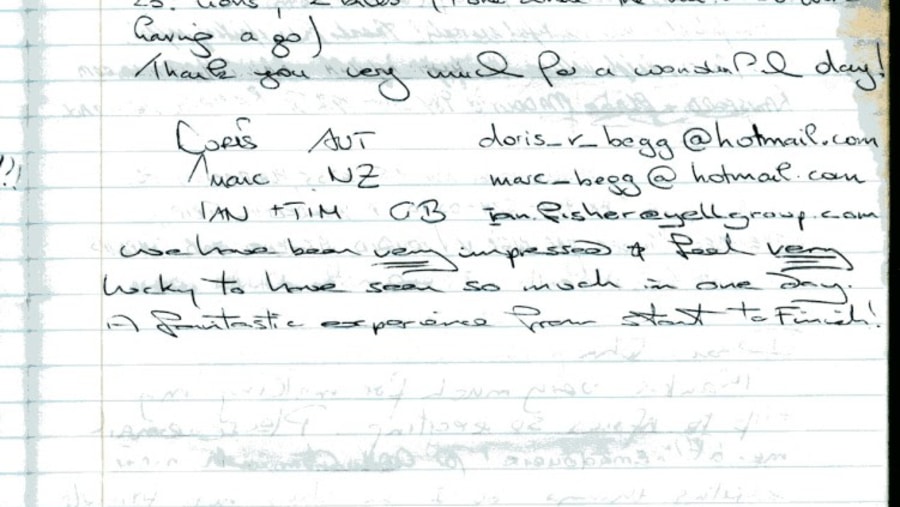 having a go)
Thank you very much for a wonderful day!
Doris AUT doris_r_begg@hotmail.com
Marc NZ marc_begg@hotmail.com
IAN + TIM GB ian.fisher@yellgroup.com
We have been very impressed & feel very
lucky to have seen so much in one day.
A fantastic experience from start to Finish!